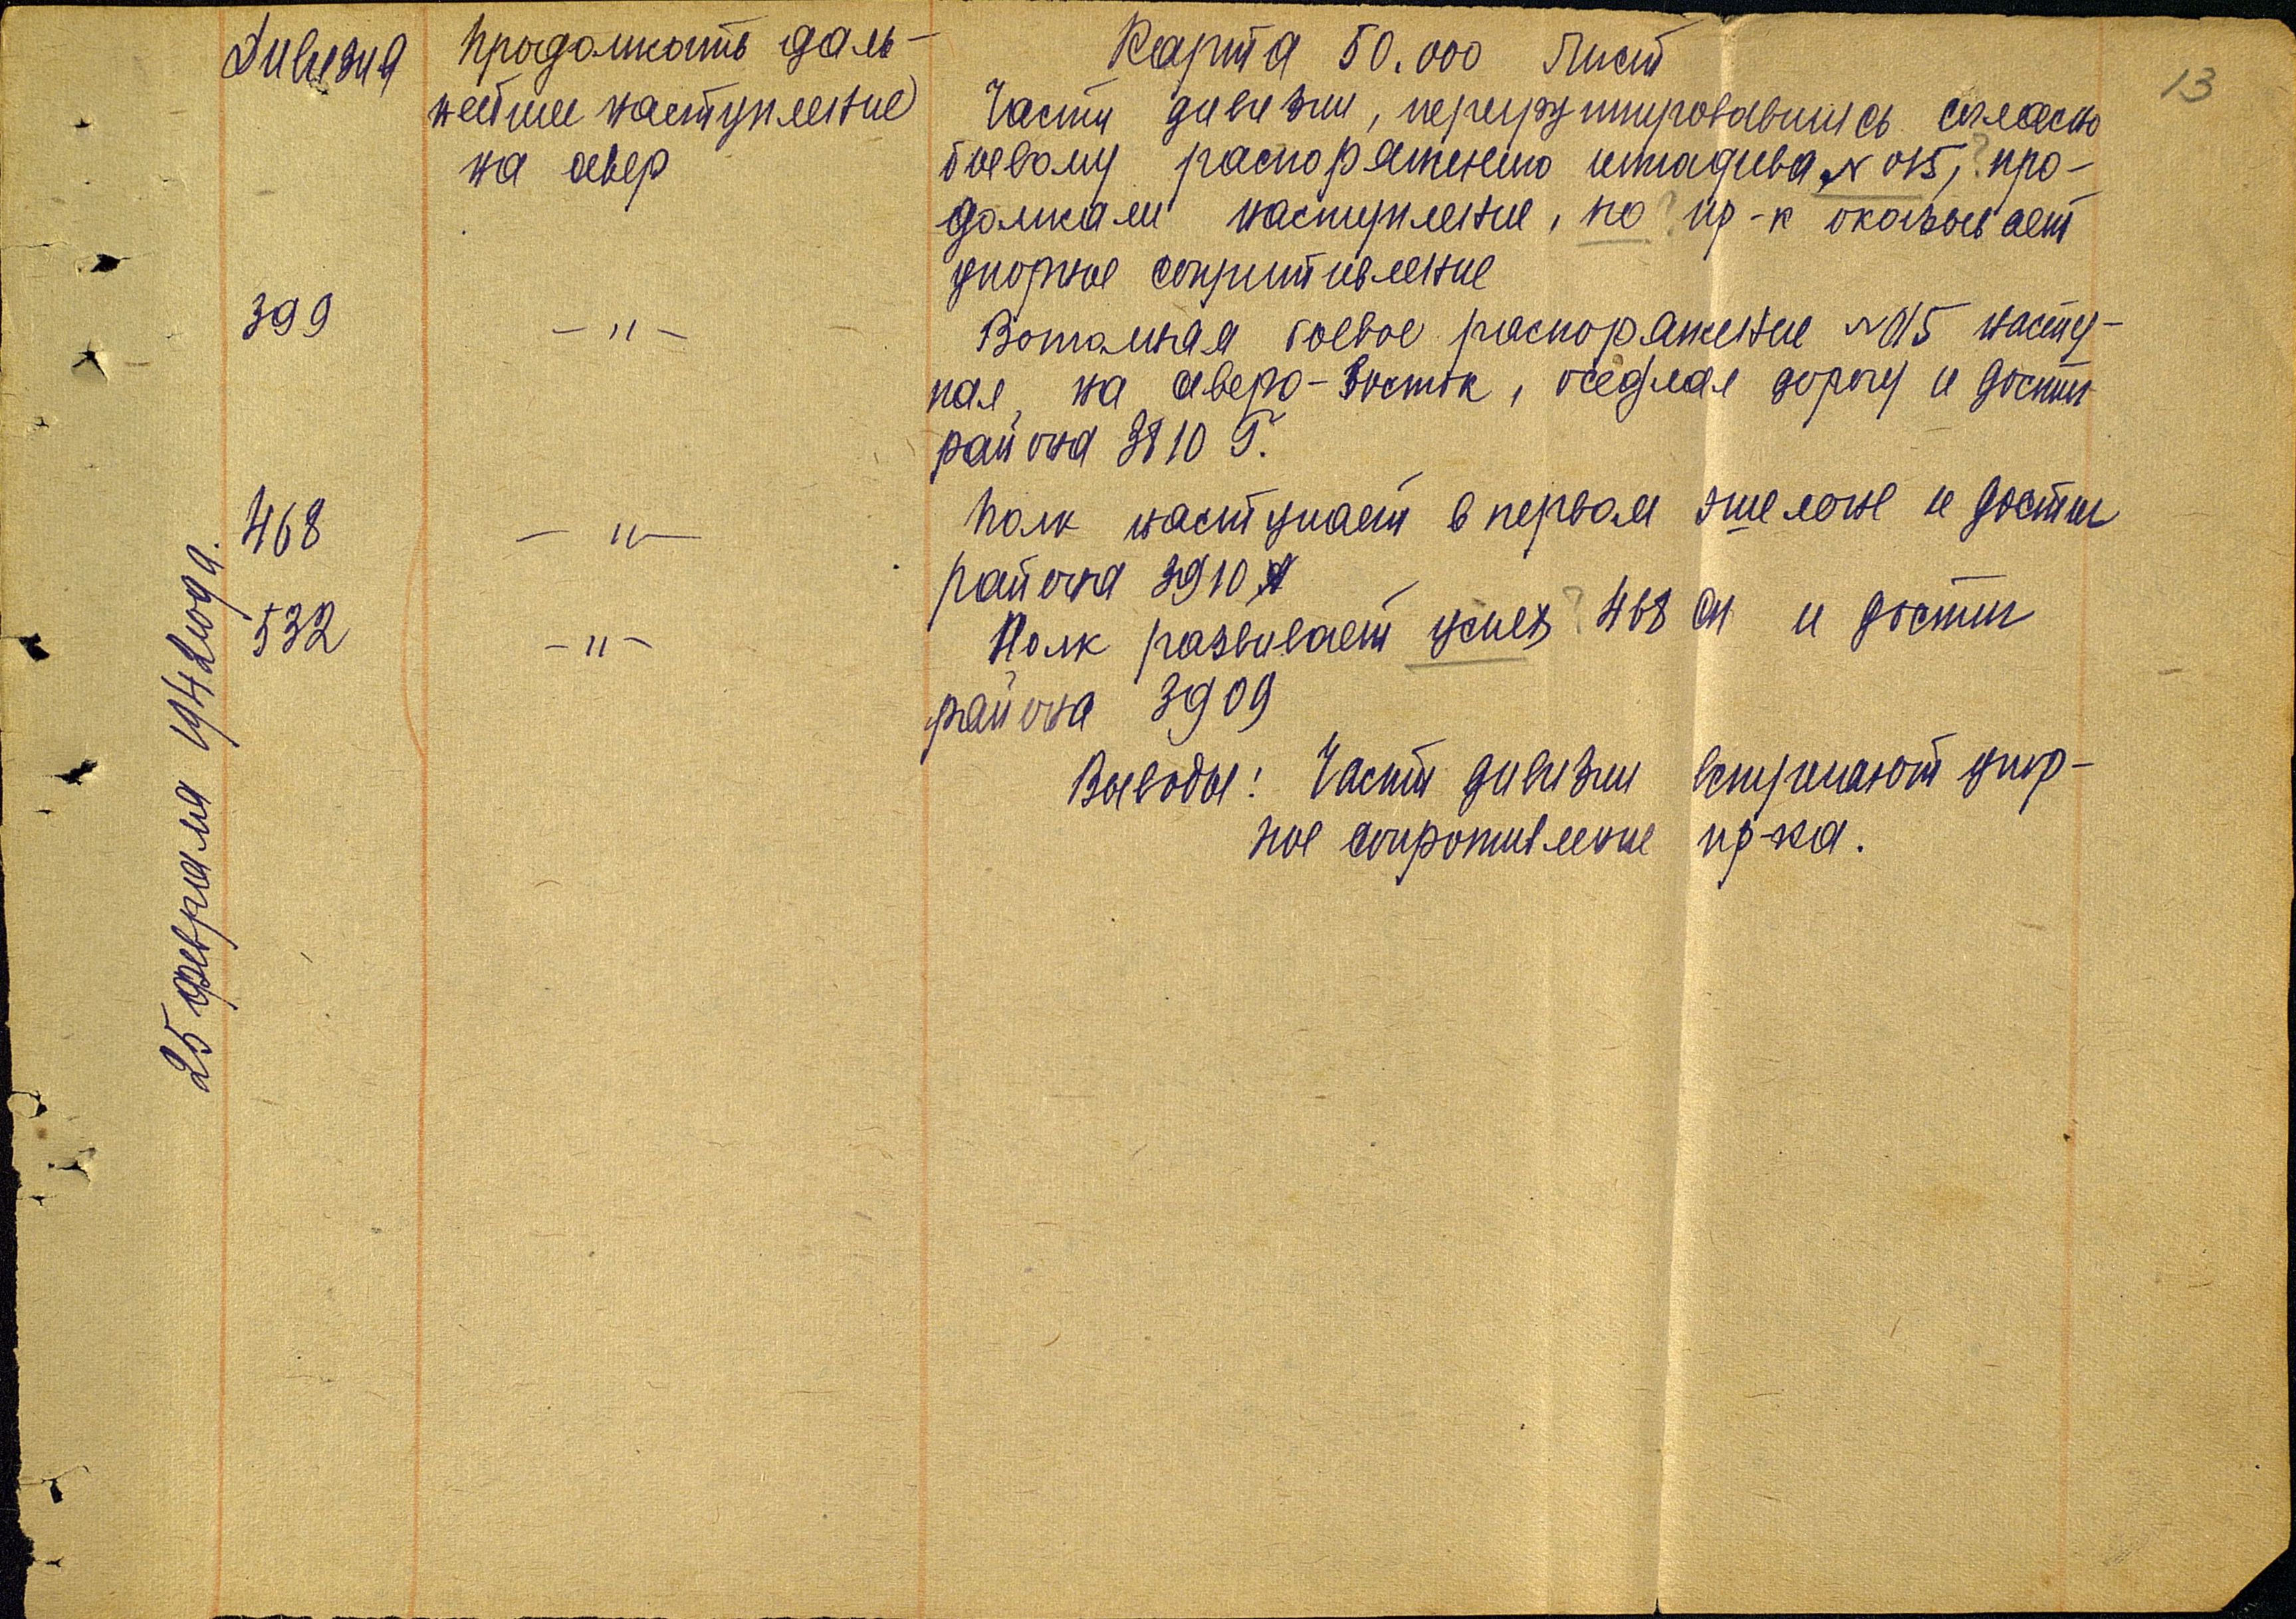 13
25 февраля 1942 года.
Дивизия
Продолжать даль-
нейшее наступление
на север
Карта 50.000 Лист
Части дивизии, перегруппировавшись согласно
боевому распоряжению штадива № 015, ? про-
должали наступление, но ? пр-к оказывает
упорное сопротивление
399
- " -
Выполняя боевое распоряжение № 015 насту-
пая на северо-восток, оседлал дорогу и достиг
района 3810 Г.
468
- " -
Полк наступает в первом эшелоне и достиг
района 3910
532
- " -
Полк развивает успех ? 468 сп и достиг
района 3909
Выводы: Части дивизии встречают упор-
ное сопротивление пр-ка.